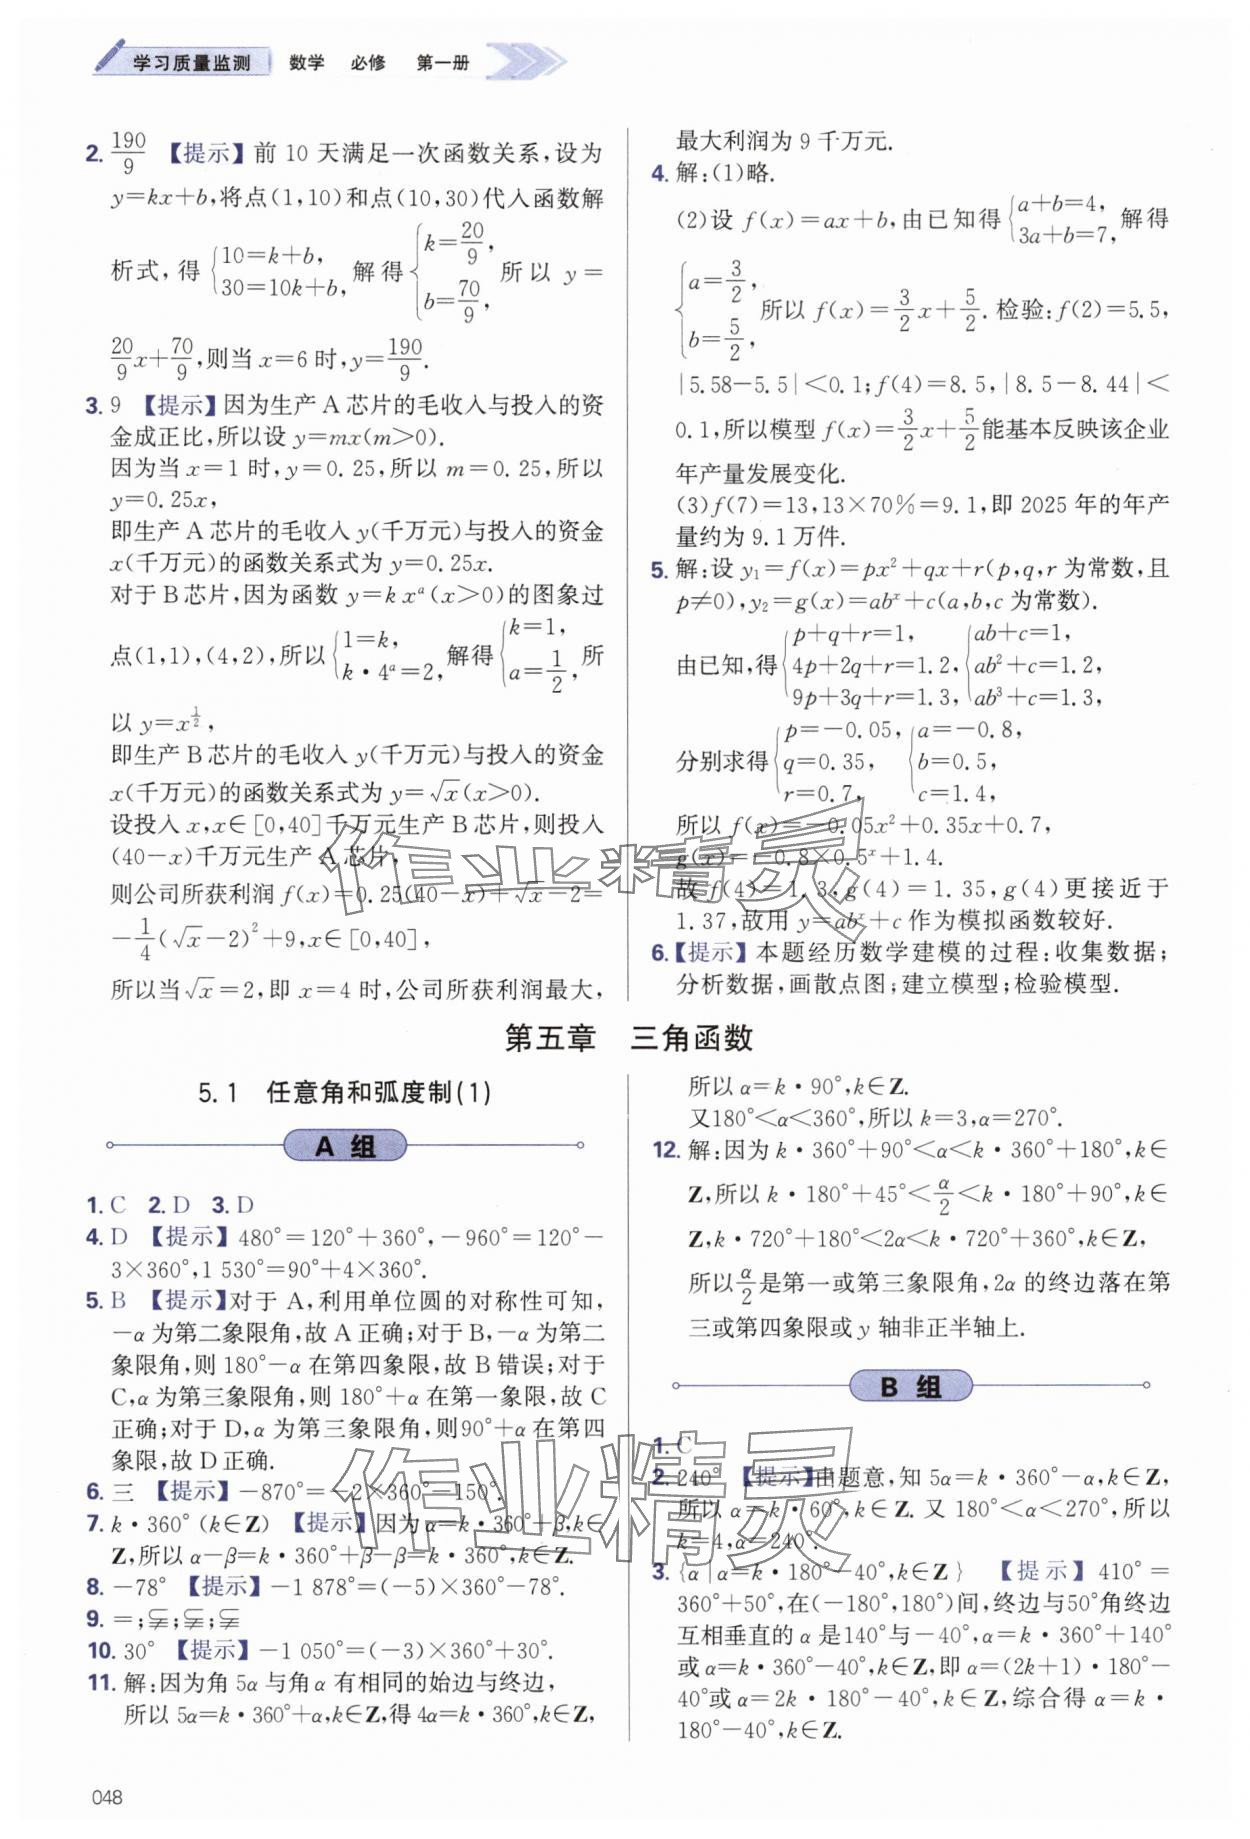 学习质量监测 数学 必修 第一册
2. 190/9 【提示】前 10 天满足一次函数关系,设为
y=kx+b,将点(1,10)和点(10,30)代入函数解
析式,得 {10=k+b, 30=10k+b, 解得 {k=20/9, b=70/9, 所以 y=
20/9x+70/9,则当 x=6 时,y=190/9.
3. 9 【提示】因为生产 A 芯片的毛收入与投入的资
金成正比,所以设 y=mx(m>0).
因为当 x=1 时,y=0.25,所以 m=0.25,所以
y=0.25x,
即生产 A 芯片的毛收入 y(千万元)与投入的资金
x(千万元)的函数关系式为 y=0.25x.
对于 B 芯片,因为函数 y=kxᵃ(x>0)的图象过
点(1,1),(4,2),所以 {1=k, k·4ᵃ=2, 解得 {k=1, a=1/2, 所
以 y=x^(1/2),
即生产 B 芯片的毛收入 y(千万元)与投入的资金
x(千万元)的函数关系式为 y=√x(x>0).
设投入 x,x∈[0,40]千万元生产 B 芯片,则投入
(40-x)千万元生产 A 芯片,
则公司所获利润 f(x)=0.25(40-x)+√x-2=
-1/4(√x-2)²+9,x∈[0,40],
所以当√x=2,即 x=4 时,公司所获利润最大,
最大利润为 9 千万元.
4. 解:(1)略.
(2)设 f(x)=ax+b,由已知得 {a+b=4, 3a+b=7, 解得
{a=3/2, b=5/2, 所以 f(x)=3/2x+5/2.检验:f(2)=5.5,
|5.58-5.5|<0.1;f(4)=8.5,|8.5-8.44|<
0.1,所以模型 f(x)=3/2x+5/2能基本反映该企业
年产量发展变化.
(3)f(7)=13,13×70%=9.1,即 2025 年的年产
量约为 9.1 万件.
5. 解:设 y₁=f(x)=px²+qx+r(p,q,r 为常数,且
p≠0),y₂=g(x)=abˣ+c(a,b,c 为常数).
由已知,得 {p+q+r=1, 4p+2q+r=1.2, 9p+3q+r=1.3, {ab+c=1, ab²+c=1.2, ab³+c=1.3,
分别求得 {p=-0.05, q=0.35, r=0.7, {a=-0.8, b=0.5, c=1.4,
所以 f(x)=-0.05x²+0.35x+0.7,
g(x)=-0.8×0.5ˣ+1.4.
故 f(4)=1.3,g(4)=1.35,g(4)更接近于
1.37,故用 y=abˣ+c 作为模拟函数较好.
6.【提示】本题经历数学建模的过程:收集数据;
分析数据,画散点图;建立模型;检验模型.
第五章 三角函数
5.1 任意角和弧度制(1)
A 组
1. C 2. D 3. D
4. D 【提示】480°=120°+360°,-960°=120°-
3×360°,1 530°=90°+4×360°.
5. B 【提示】对于 A,利用单位圆的对称性可知,
-α 为第二象限角,故 A 正确;对于 B,-α 为第二
象限角,则 180°-α 在第四象限,故 B 错误;对于
C,α 为第三象限角,则 180°+α 在第一象限,故 C
正确;对于 D,α 为第三象限角,则90°+α 在第四
象限,故 D 正确.
6. 三 【提示】-870°=-2×360°-150°.
7. k·360°(k∈Z) 【提示】因为 α=k·360°+β,k∈
Z,所以 α-β=k·360°+β-β=k·360°,k∈Z.
8. -78° 【提示】-1 878°=(-5)×360°-78°.
9. =;⫋;⫋;⫋
10. 30° 【提示】-1 050°=(-3)×360°+30°.
11. 解:因为角 5α 与角 α 有相同的始边与终边,
所以 5α=k·360°+α,k∈Z,得 4α=k·360°,k∈Z,
所以 α=k·90°,k∈Z.
又180°<α<360°,所以 k=3,α=270°.
12. 解:因为 k·360°+90°<α<k·360°+180°,k∈
Z,所以 k·180°+45°<α/2<k·180°+90°,k∈
Z,k·720°+180°<2α<k·720°+360°,k∈Z,
所以α/2是第一或第三象限角,2α 的终边落在第
三或第四象限或 y 轴非正半轴上.
B 组
1. C
2. 240° 【提示】由题意,知 5α=k·360°-α,k∈Z,
所以 α=k·60°,k∈Z.又 180°<α<270°,所以
k=4,α=240°.
3. {α|α=k·180°-40°,k∈Z} 【提示】410°=
360°+50°,在(-180°,180°)间,终边与50°角终边
互相垂直的 α 是140°与-40°,α=k·360°+140°
或α=k·360°-40°,k∈Z,即 α=(2k+1)·180°-
40°或 α=2k·180°-40°,k∈Z,综合得 α=k·
180°-40°,k∈Z.
048
作业精灵
作业精灵